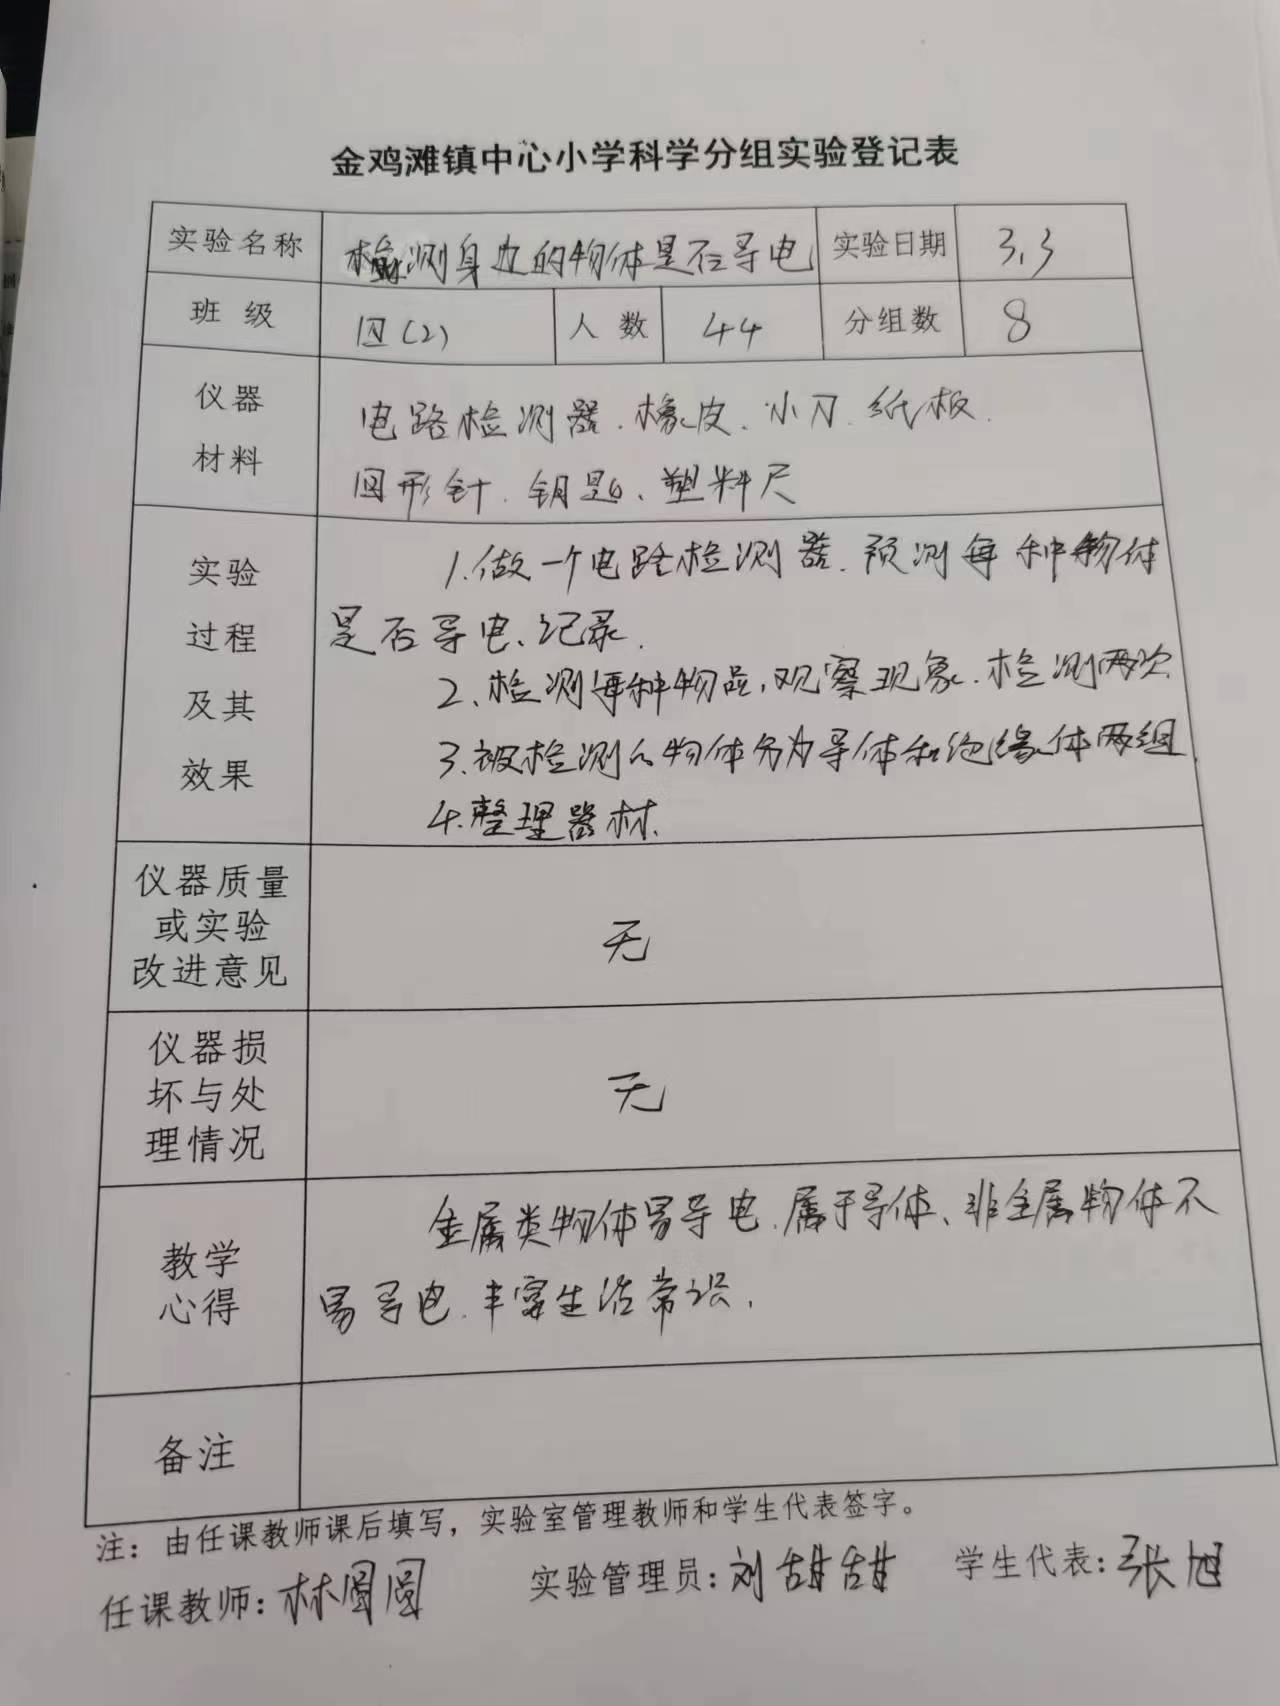 金鸡滩镇中心小学科学分组实验登记表
实验名称 检测身边的物体是否导电 实验日期 3.3
班级 四(2) 人数 44 分组数 8
仪器
材料
电路检测器、橡皮、小刀、纸板、
回形针、钥匙、塑料尺
实验
过程
及其
效果
1.做一个电路检测器.预测每种物体
是否导电、记录.
2、检测每种物品,观察现象.检测两次
3.被检测的物体分为导体和绝缘体两组.
4.整理器材.
仪器质量
或实验
改进意见
无
仪器损
坏与处
理情况
无
教学
心得
金属类物体易导电.属于导体、非金属物体不
易导电.丰富生活常识.
备注
注：由任课教师课后填写，实验室管理教师和学生代表签字。
任课教师:林圆圆 实验管理员:刘甜甜 学生代表:张旭